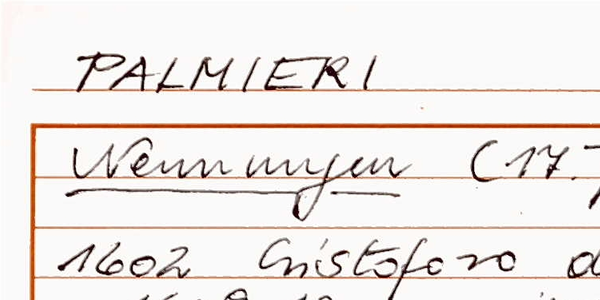 PALMIERI
Nennungen (17.
1602 Cristoforo d